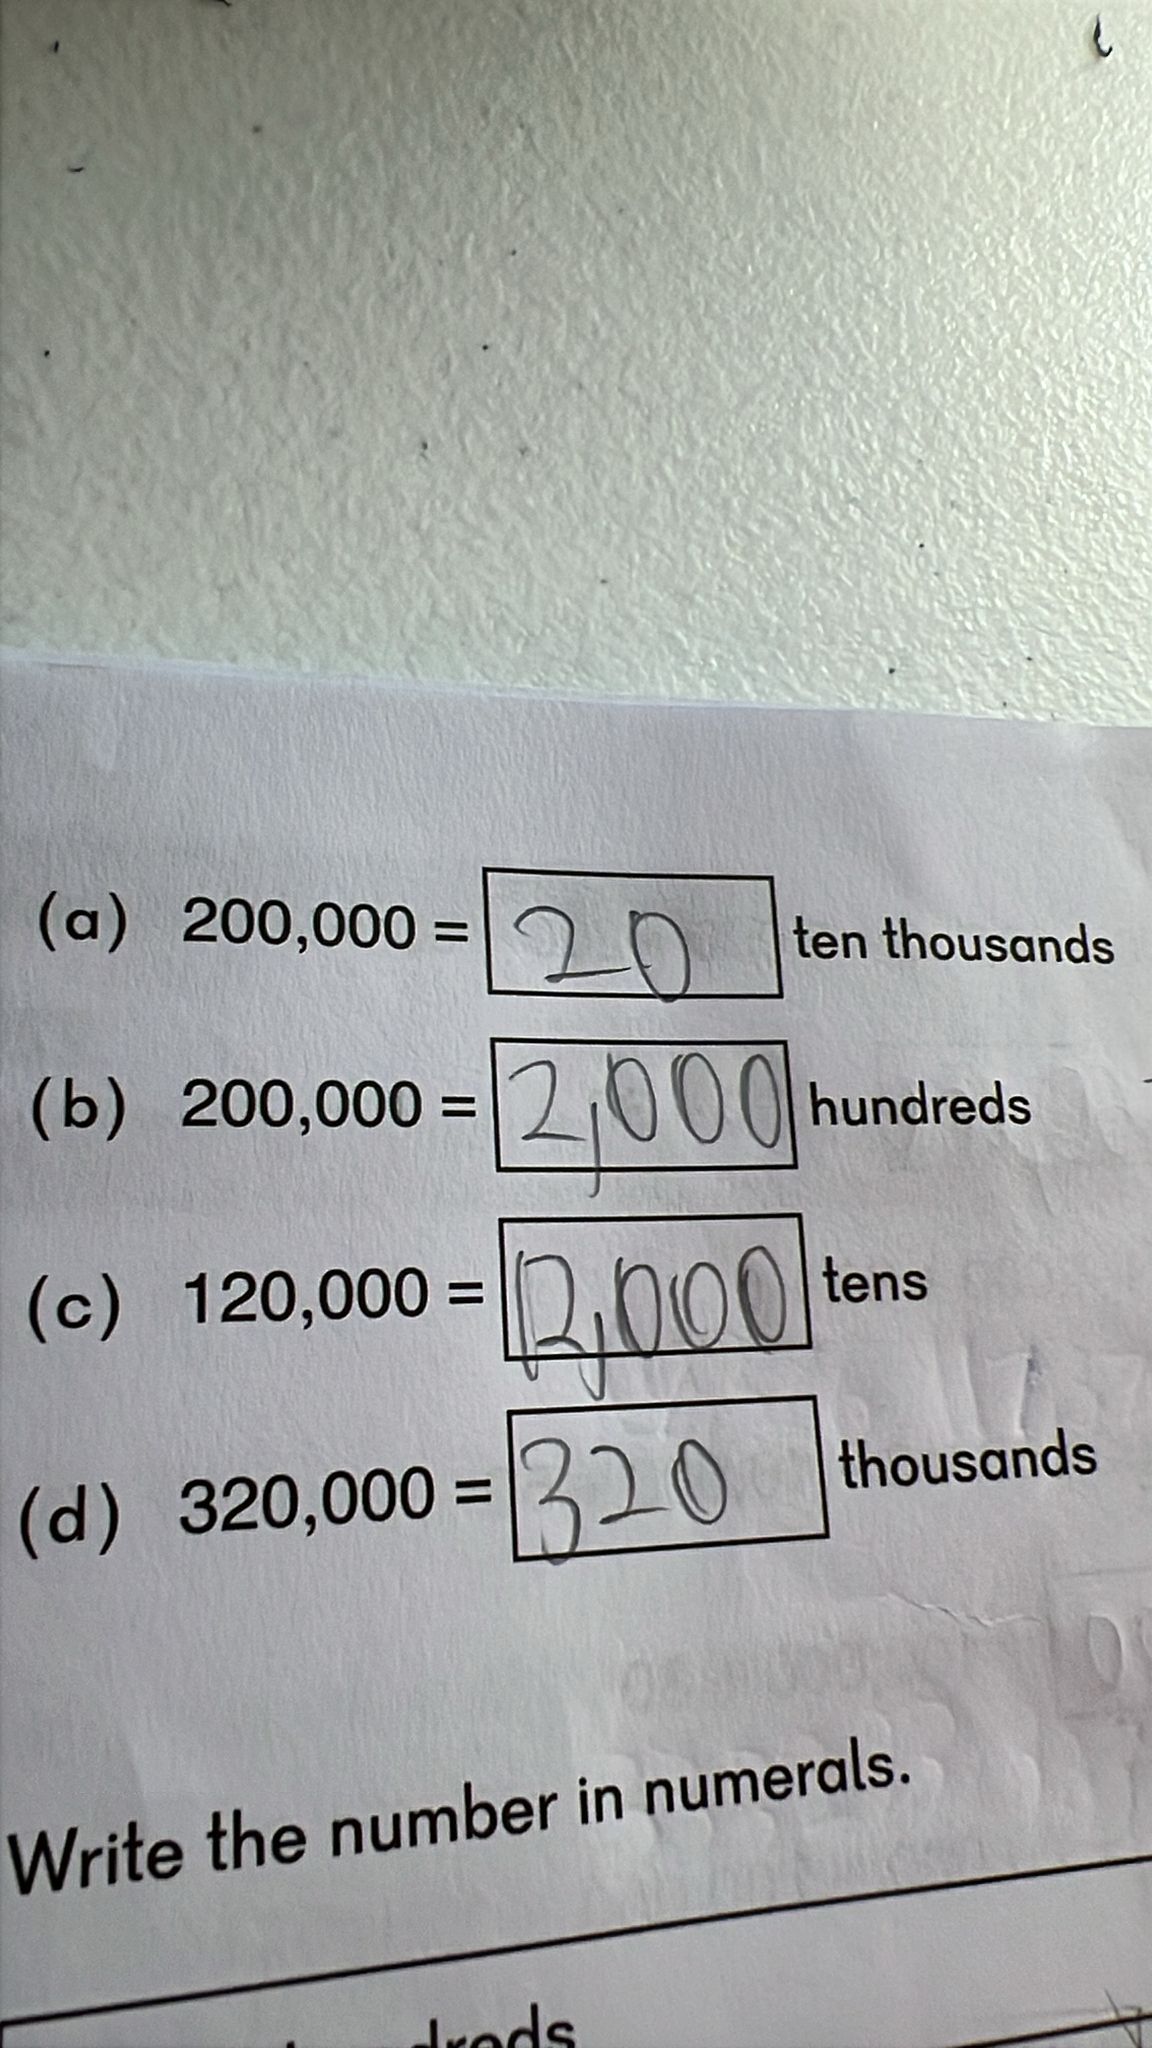 (a) 200,000 = 20 ten thousands
(b) 200,000 = 2,000 hundreds
(c) 120,000 = 12,000 tens
(d) 320,000 = 320 thousands
Write the number in numerals.